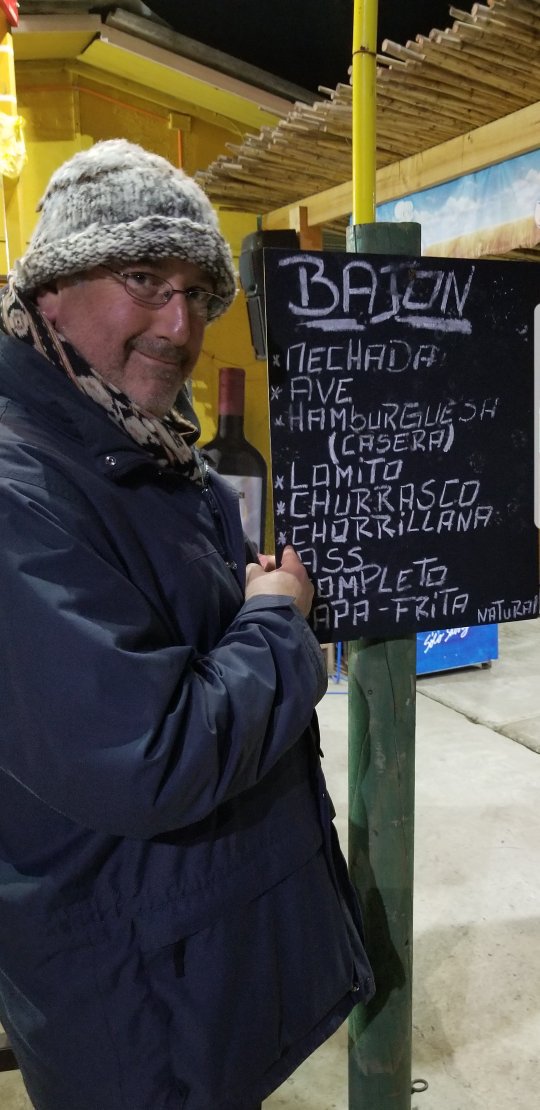 BAJON
* MECHADA
* AVE
* HAMBURGUESA
(CASERA)
* LOMITO
* CHURRASCO
* CHORRILLANA
ASS
OMPLETO
PAPA-FRITA NATURAL